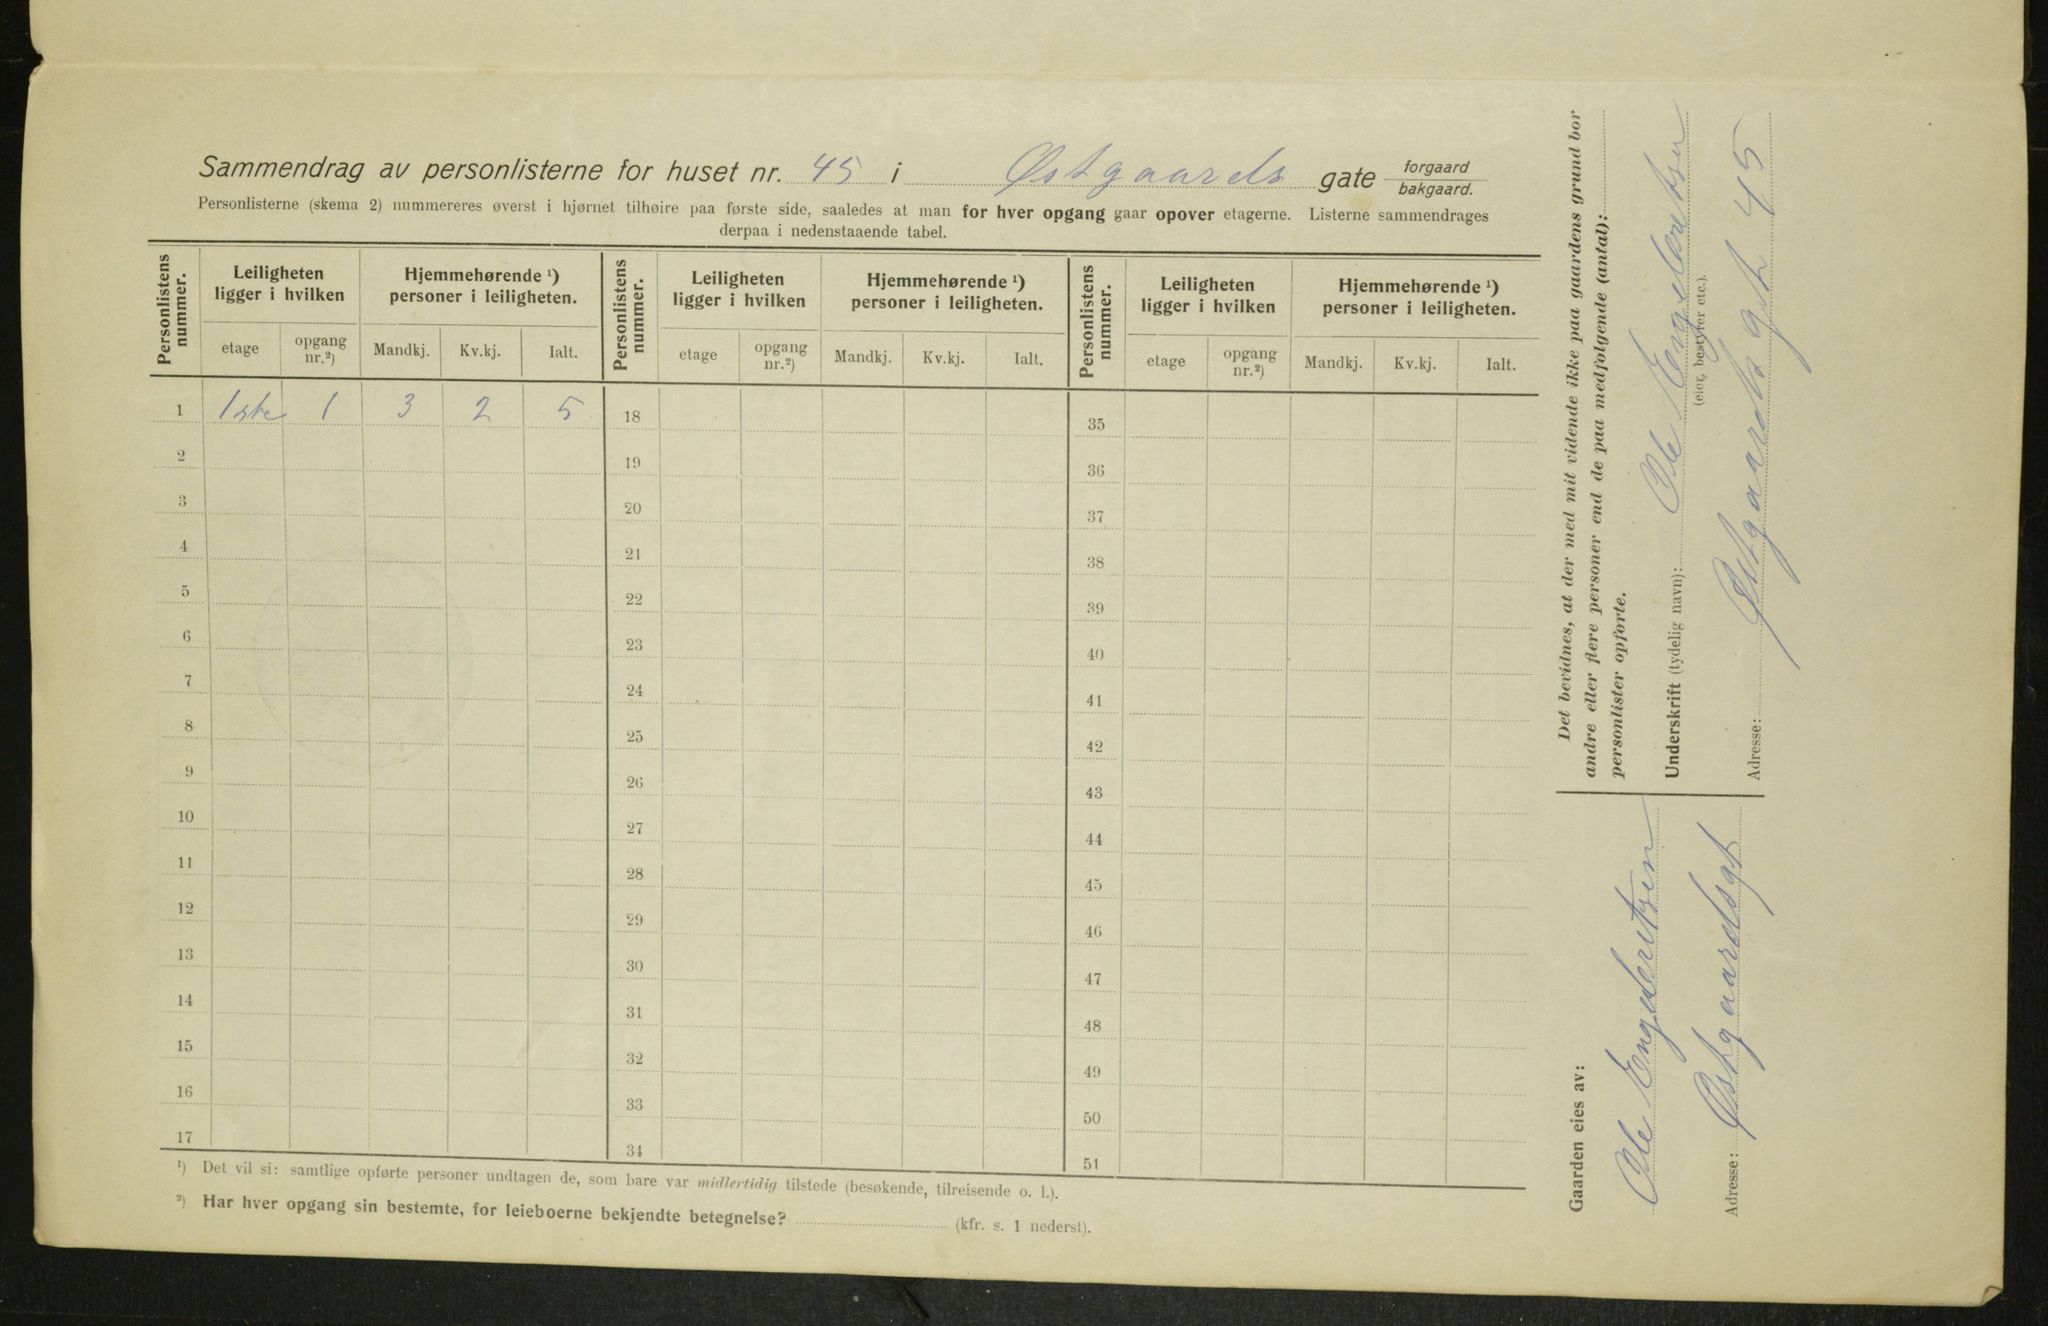 Sammendrag av personlisterne for huset nr. 45 i Østgaards gate forgaard bakgaard.
Personlisterne (skema 2) nummereres øverst i hjørnet tilhøire paa første side, saaledes at man for hver opgang gaar opover etagerne. Listerne sammendrages
derpaa i nedenstaaende tabel.
Personlistens nummer. Leiligheten ligger i hvilken Hjemmehørende ¹) personer i leiligheten. Personlistens nummer. Leiligheten ligger i hvilken Hjemmehørende ¹) personer i leiligheten. Personlistens nummer. Leiligheten ligger i hvilken Hjemmehørende ¹) personer i leiligheten.
etage opgang nr.²) Mandkj. Kv.kj. Ialt. etage opgang nr.²) Mandkj. Kv.kj. Ialt. etage opgang nr.²) Mandkj. Kv.kj. Ialt.
1 1ste 1 3 2 5 18 35
2 19 36
3 20 37
4 21 38
5 22 39
6 23 40
7 24 41
8 25 42
9 26 43
10 27 44
11 28 45
12 29 46
13 30 47
14 31 48
15 32 49
16 33 50
17 34 51
¹) Det vil si: samtlige opførte personer undtagen de, som bare var midlertidig tilstede (besøkende, tilreisende o. l.).
²) Har hver opgang sin bestemte, for leieboerne bekjendte betegnelse? (kfr. s. 1 nederst).
Det bevidnes, at der med mit vidende ikke paa gaardens grund bor
andre eller flere personer end de paa medfølgende (antal):
personlister opførte.
Underskrift (tydelig navn): Ole Engebretsen
(eier, bestyrer etc.).
Adresse: Østgaards gt 45
Gaarden eies av:
Ole Engebretsen
Adresse: Østgaardsgt